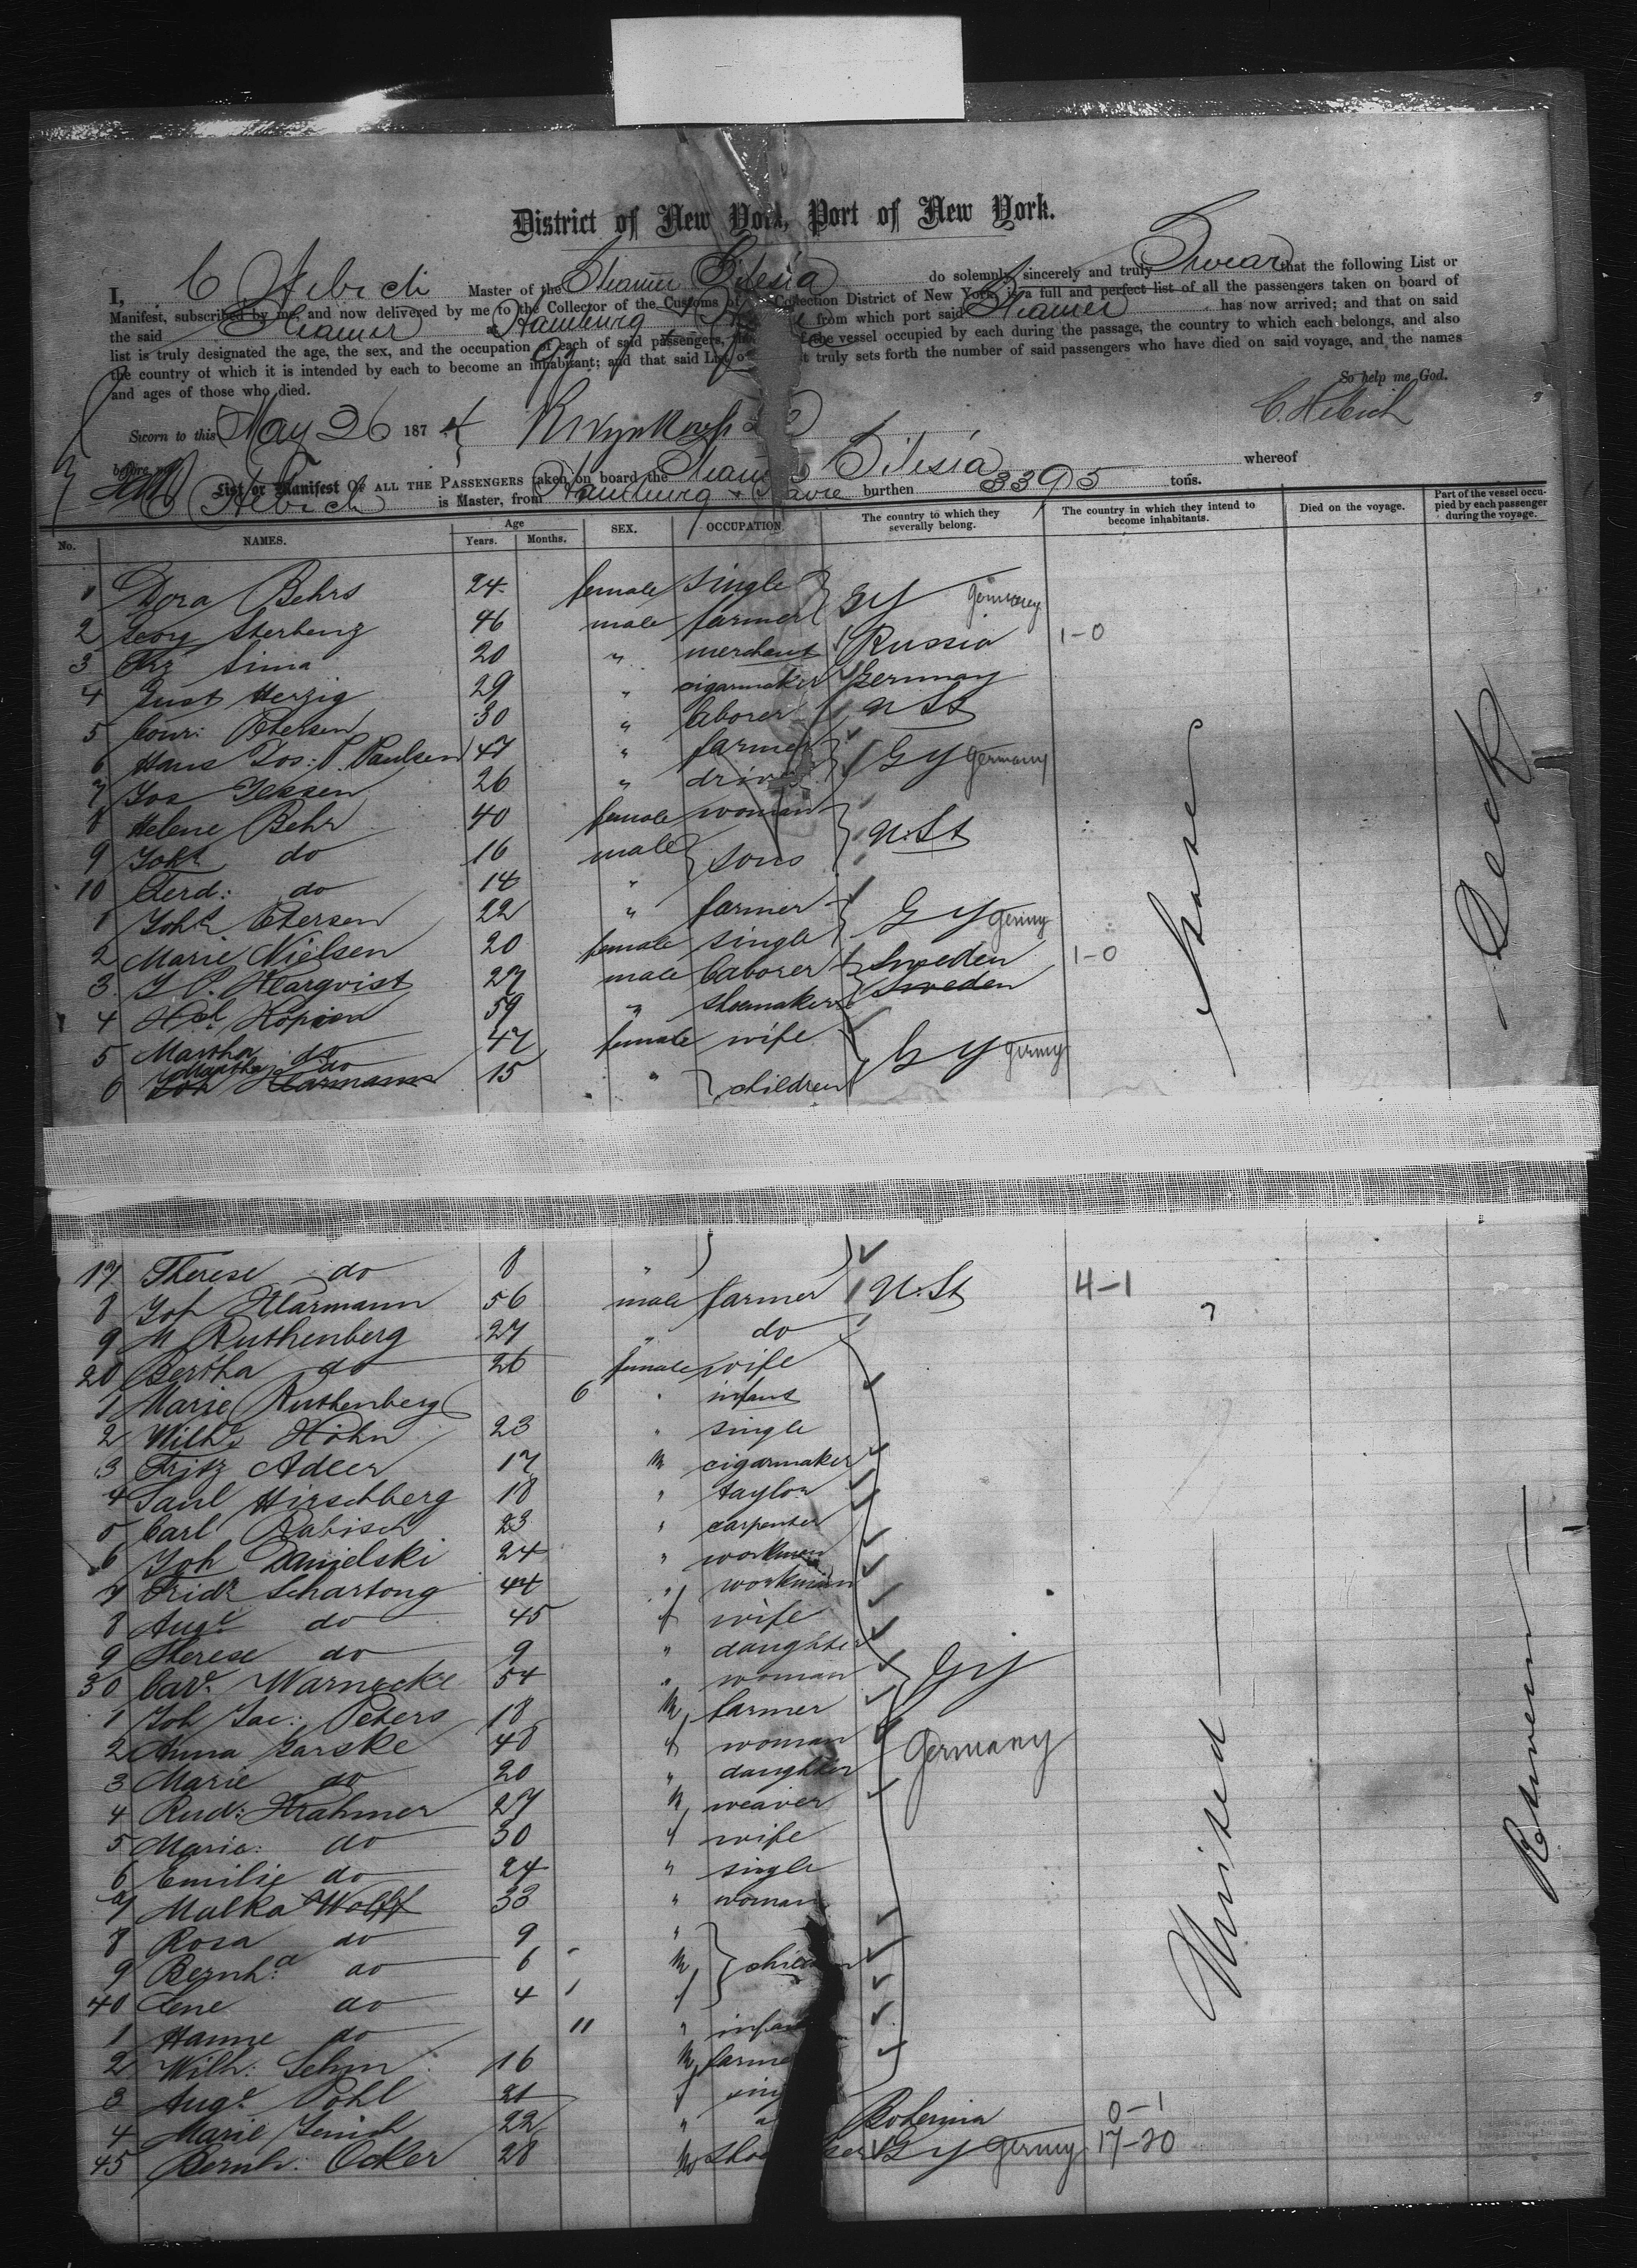 District of New York, Port of New York.
I, C Hebich Master of the Steamer Silesia do solemnly, sincerely and truly Swear that the following List or
Manifest, subscribed by me, and now delivered by me to the Collector of the Customs of Collection District of New York, is a full and perfect list of all the passengers taken on board of
the said Steamer at Hamburg from which port said Steamer has now arrived; and that on said
list is truly designated the age, the sex, and the occupation of each of said passengers, the vessel occupied by each during the passage, the country to which each belongs, and also
the country of which it is intended by each to become an inhabitant; and that said List truly sets forth the number of said passengers who have died on said voyage, and the names
and ages of those who died.
So help me God.
Sworn to this May 26 1874 C. Hebich
before me
List or Manifest OF ALL THE PASSENGERS taken on board the Steamer Silesia whereof
C Hebich is Master, from Hamburg & Havre burthen 3395 tons.
No. NAMES. Age Years. Months. SEX. OCCUPATION The country to which they severally belong. The country in which they intend to become inhabitants. Died on the voyage. Part of the vessel occupied by each passenger during the voyage.
1 Dora Behrs 24 female single Gy Germany
2 Georg Sterbenz 46 male farmer
3 Sima 20 " merchant Russia 1-0
4 Gust Herzig 29 " cigarmaker Germany
5 Petersen 30 " laborer U St
6 Hans Jos: P. Paulsen 47 " farmer Gy Germany
7 Jos Jessen 26 "
8 Helene Behr 40 female woman U. St
9 Joh do 16 male sons
10 Ferd: do 14 "
1 Joh Petersen 22 " farmer Gy Germy
2 Marie Nielsen 20 female single
3 J P. Harqvist 27 male laborer Sweden 1-0
4 59 " shoemaker Sweden
5 Martha do 47 female wife Gy Germy
6 Martha do Joh Harmann 15 " children
17 Therese do 8 "
8 Joh Harmann 56 male farmer U. St 4-1
9 M Ruthenberg 27 " do
20 Bertha do 26 female wife
1 Marie Ruthenberg 6 " infant
2 Wilhe Höhn 23 " single
3 Fritz Adler 17 m cigarmaker
4 Saul Hirschberg 18 " taylor
5 Carl Rabisch 23 " carpenter
6 Joh Danielski 24 " workman
7 Fridr Schartong 44 " workman
8 Auge do 45 f wife
9 Therese do 9 " daughter
30 Care Warnecke 54 " woman Gy
1 Joh Jac: Peters 18 m farmer
2 Anna Jarske 48 f woman Germany
3 Marie do 20 " daughter
4 Rud: Krahmer 27 m weaver
5 Marie: do 30 f wife
6 Emilie do 24 " single
7 Malka Wolff 33 " woman
8 Rosa do 9 "
9 Bernhd do 6 m
40 Lene do 4 f
1 Hanne do 11 "
2 Wilh: Sehm 16 m
3 Auge Pohl 21 f
4 Marie Jenich 22 " Bohemia 0-1
45 Bernh: Ocker 28 m Gy Germy 17-20
United
Deck
Between